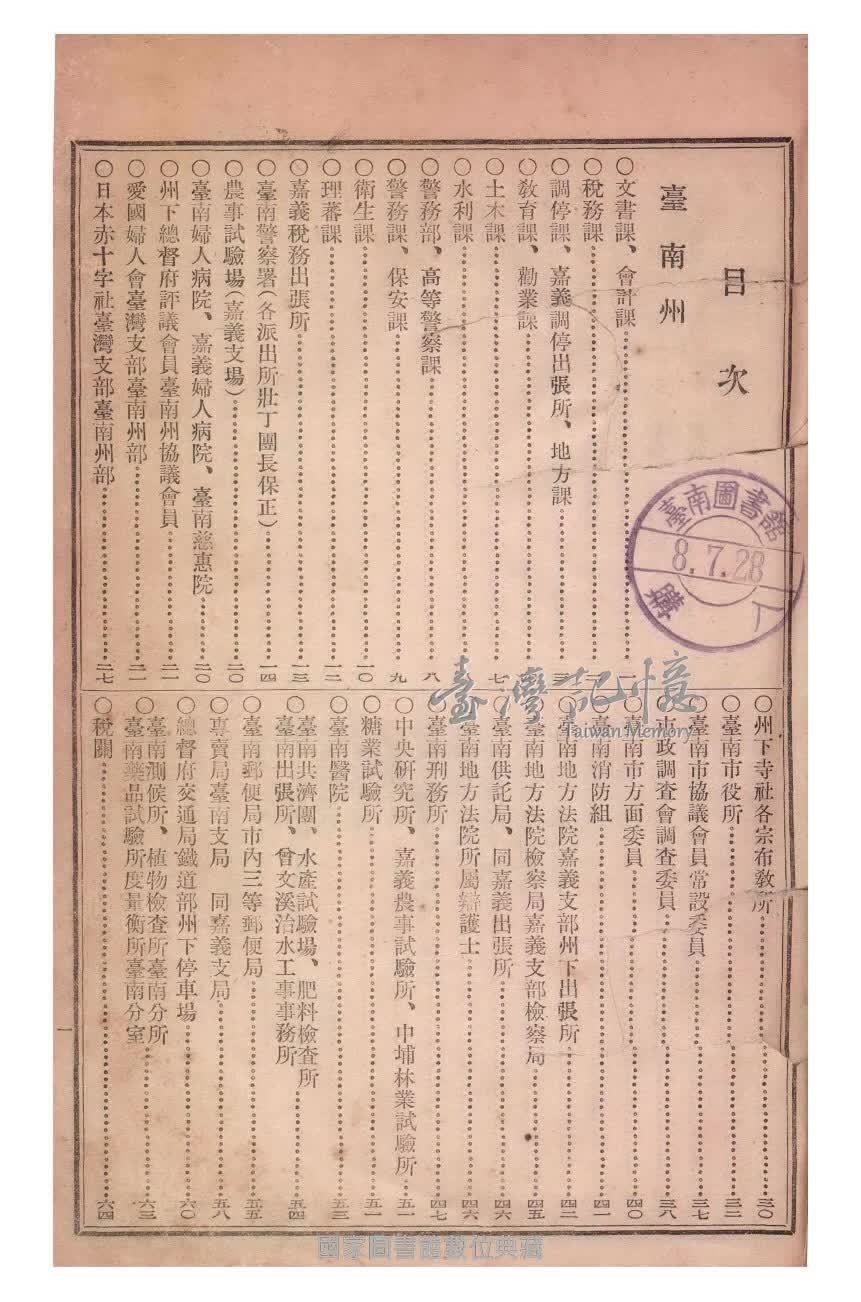 目次
臺南州
〇文書課、會計課
〇稅務課
〇調停課、嘉義調停出張所、地方課
〇敎育課、勸業課
〇土木課 七
〇水利課
〇警務部、高等警察課 八
〇警務課、保安課 九
〇衛生課 一〇
〇理蕃課 一二
〇嘉義稅務出張所 一三
〇臺南警察署(各派出所壯丁團長保正) 一四
〇農事試驗場(嘉義支場) 二〇
〇臺南婦人病院、嘉義婦人病院、臺南慈惠院 二〇
〇州下總督府評議會員臺南州協議會員 二一
〇愛國婦人會臺灣支部臺南州部 二一
〇日本赤十字社臺灣支部臺南州部 二七
〇州下寺社各宗布敎所 三〇
〇臺南市役所 三二
〇臺南市協議會員常設委員 三七
〇市政調查會調查委員 三八
〇臺南市方面委員 四〇
〇臺南消防組 四一
〇臺南地方法院嘉義支部州下出張所 四二
〇臺南地方法院檢察局嘉義支部檢察局 四五
〇臺南供託局、同嘉義出張所 四六
〇臺南地方法院所屬辯護士 四六
〇臺南刑務所 四七
〇中央硏究所、嘉義農事試驗所、中埔林業試驗所 五一
〇糖業試驗所 五一
〇臺南醫院 五三
〇臺南共濟團、水產試驗場、肥料檢查所
臺南出張所、曾文溪治水工事事務所 五四
〇臺南郵便局市內三等郵便局 五五
〇專賣局臺南支局 同嘉義支局 五八
〇總督府交通局鐵道部州下停車場 六〇
〇臺南測候所、植物檢查所臺南分所
臺南藥品試驗所度量衡所臺南分室 六三
〇稅關 六四
一
臺南圖書館
8.7.28
購
臺灣記憶
Taiwan Memory
國家圖書館數位典藏